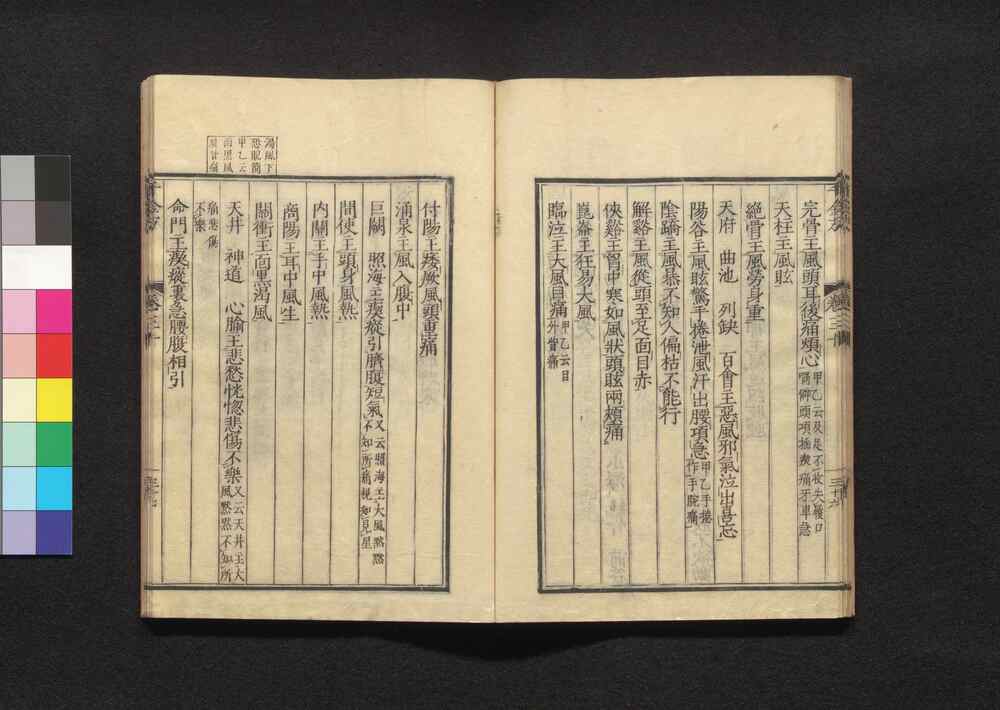 完骨主風頭耳後痛煩心甲乙云及足不收失履口
喎僻頭項搖瘈痛牙車急
天柱主風眩
絶骨主風勞身重
天府　曲池　列缺　百會主惡風邪氣泣出喜忘
陽谷主風眩驚手捲泄風汗出腰項急甲乙手捲
作手腕痛
陰蹻主風暴不知人偏枯不能行
解谿主風從頭至足面目赤
俠谿主胷中寒如風狀頭眩兩頰痛
崑崙主狂易大風
臨泣主大風目痛甲乙云目
外眥痛
三十六
湯風下
甲乙云
面黑風
付陽主痿厥風頭重痛
涌泉主風入腹中
巨闕　照海主瘈瘲引臍腹短氣又云照海主大風黙黙
不知所痛視如見星
間使主頭身風熱
内關主手中風熱
商陽主耳中風生
關衝主面黒渇風
天井　神道　心腧主悲愁恍惚悲傷不樂又云天井主大
風黙黙不知所
痛悲傷
不樂
命門主瘈瘲裏急腰腹相引